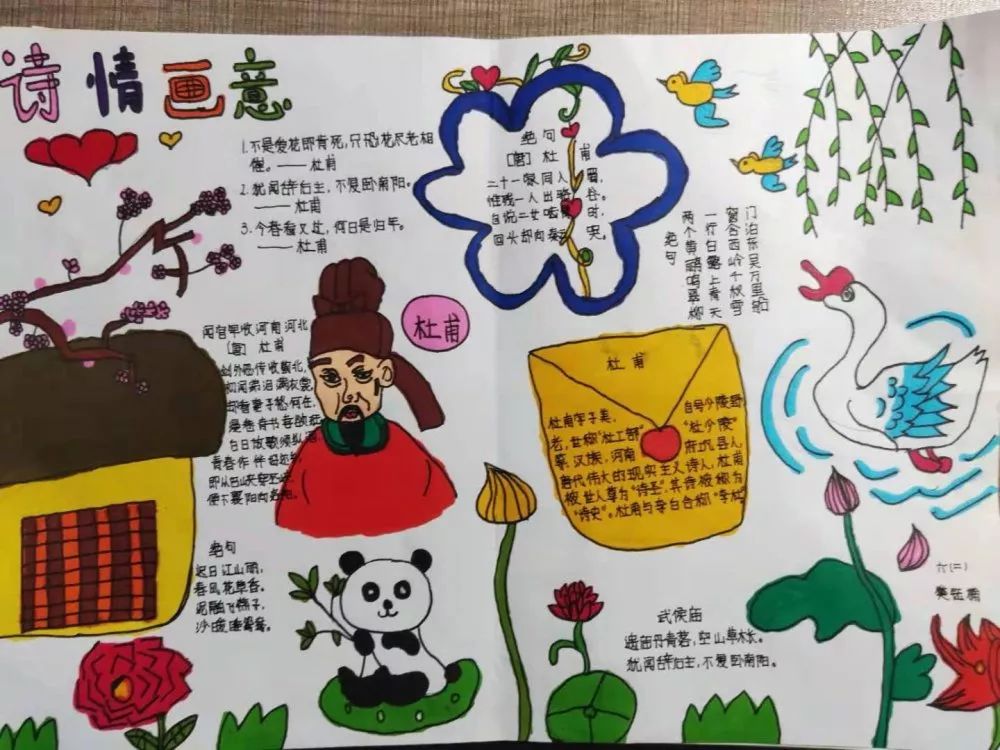 诗情画意
1.不是爱花即肯死,只恐花尽老相
催。——杜甫
2.犹闻辞后主,不爱卧南阳。
——杜甫
3.今春看又过,何日是归年。
——杜甫
绝句
[唐]杜甫
二十一家同入蜀,
惟残一人出骆谷。
自说二女啮臂时,
回头却向秦云哭。
绝句
两个黄鹂鸣翠柳
一行白鹭上青天
窗含西岭千秋雪
门泊东吴万里船
杜甫
闻官军收河南河北
[唐]杜甫
剑外忽传收蓟北,
初闻涕泪满衣裳,
却看妻子愁何在,
漫卷诗书喜欲狂
白日放歌须纵酒
青春作伴好还乡
即从巴峡穿巫峡
便下襄阳向洛阳。
杜甫
杜甫字子美,自号少陵野
老,世称"杜工部""杜少陵"
汉族,河南府巩县人,
唐代伟大的现实主义诗人,杜甫
被世人尊为"诗圣",其诗被称为
"诗史"。杜甫与李白合称"李杜"
绝句
迟日江山丽,
春风花草香。
泥融飞燕子,
沙暖睡鸳鸯。
武侯庙
遗庙丹青落,空山草木长。
犹闻辞后主,不爱卧南阳。
六(二)